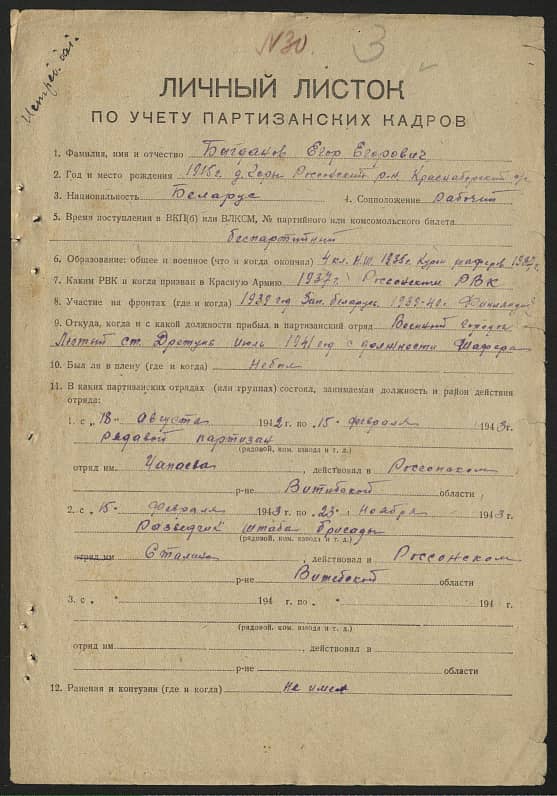 №30. 3
ЛИЧНЫЙ ЛИСТОК
ПО УЧЕТУ ПАРТИЗАНСКИХ КАДРОВ
1. Фамилия, имя и отчество Богданов Егор Егорович
2. Год и место рождения 1916 г. д. Россонский р-н
3. Национальность Беларус 4. Соцположение рабочий
5. Время поступления в ВКП(б) или ВЛКСМ, № партийного или комсомольского билета
беспартийний
6. Образование: общее и военное (что и когда окончил) 4 кл. Н.Ш. 1937 г.
7. Каким РВК и когда призван в Красную Армию 1937 г. Россонским РВК
8. Участие на фронтах (где и когда) 1939 год Зап. беларусь, 1939-40 г.
9. Откуда, когда и с какой должности прибыл в партизанский отряд Военный городок
ст. Дретунь июль 1941 год с должности Шафера
10. Был ли в плену (где и когда) Небыл
11. В каких партизанских отрядах (или группах) состоял, занимаемая должность и район действия
отряда:
1. с „18" Августа 1942 г. по „15" февраля 1943 г.
редавой партизан
(рядовой, ком. взвода и т. д.)
отряд им. Чапаева, действовал в Россонском
р-не Витибской области
2. с „15" Февраля 1943 г. по „23" Ноября 1943 г.
Разведчик штаба бригады
(рядовой, ком. взвода и т. д.)
отряд им Сталина, действовал в Россонском
р-не Витебской области
3. с „ " 194 г. по „ " 194 г.
(рядовой, ком. взвода и т. д.)
отряд им., действовал в
р-не области
12. Ранения и контузии (где и когда) не имел